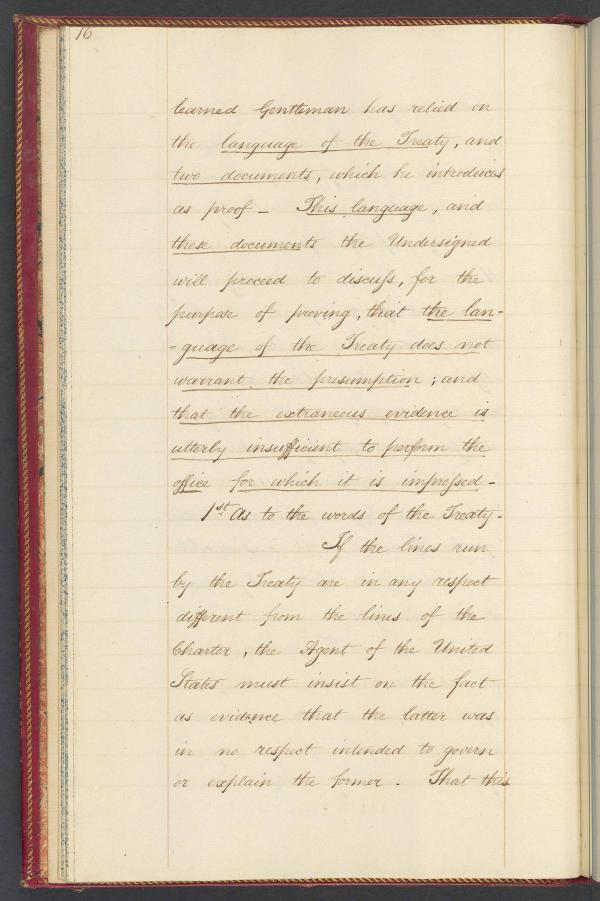 16
learned Gentleman has relied on
the language of the Treaty, and
two documents, which he introduces
as proof – This language, and
these documents the Undersigned
will proceed to discuſs, for the
purpose of proving, that the lan-
-guage of the Treaty does not
warrant the presumption; and
that the extraneous evidence is
utterly insufficient to perform the
office for which it is impreſsed –
1st As to the words of the Treaty –
If the lines run
by the Treaty are in any respect
different from the lines of the
Charter, the Agent of the United
States must insist on the fact
as evidence that the latter was
in no respect intended to govern
or explain the former. That this